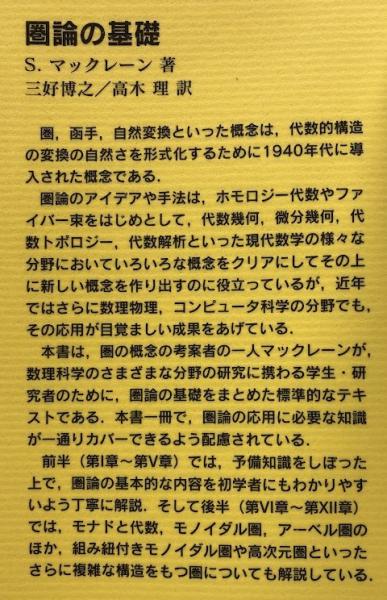 圏論の基礎
S. マックレーン 著
三好博之／高木 理 訳
圏，函手，自然変換といった概念は，代数的構造
の変換の自然さを形式化するために1940年代に導
入された概念である．
圏論のアイデアや手法は，ホモロジー代数やファ
イバー束をはじめとして，代数幾何，微分幾何，代
数トポロジー，代数解析といった現代数学の様々な
分野においていろいろな概念をクリアにしてその上
に新しい概念を作り出すのに役立っているが，近年
ではさらに数理物理，コンピュータ科学の分野でも，
その応用が目覚ましい成果をあげている．
本書は，圏の概念の考案者の一人マックレーンが，
数理科学のさまざまな分野の研究に携わる学生・研
究者のために，圏論の基礎をまとめた標準的なテキ
ストである．本書一冊で，圏論の応用に必要な知識
が一通りカバーできるよう配慮されている．
前半（第I章〜第V章）では，予備知識をしぼった
上で，圏論の基本的な内容を初学者にもわかりやす
いよう丁寧に解説．そして後半（第VI章〜第XII章）
では，モナドと代数，モノイダル圏，アーベル圏の
ほか，組み紐付きモノイダル圏や高次元圏といった
さらに複雑な構造をもつ圏についても解説している．